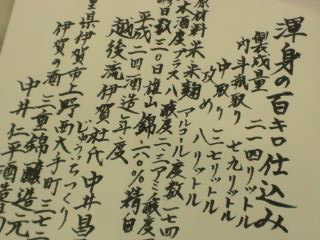 渾身の百キロ仕込み
製成量 二一四リットル
内斗瓶取り 七九リットル
中取り 一二七リットル
攻め 八リットル
原材料 米 米麹 アルコール度数 一七四
日本酒度 プラス八 酸度 二・三 アミノ酸度
日数 三〇日 雄山錦 六〇%精白
平成二四酒造年度
越後流伊賀杜氏 中井昌
じょうぞうちっくり
重県伊賀市上野西大手町三七二
伊賀の酒 三重錦醸造元
中井仁平酒造